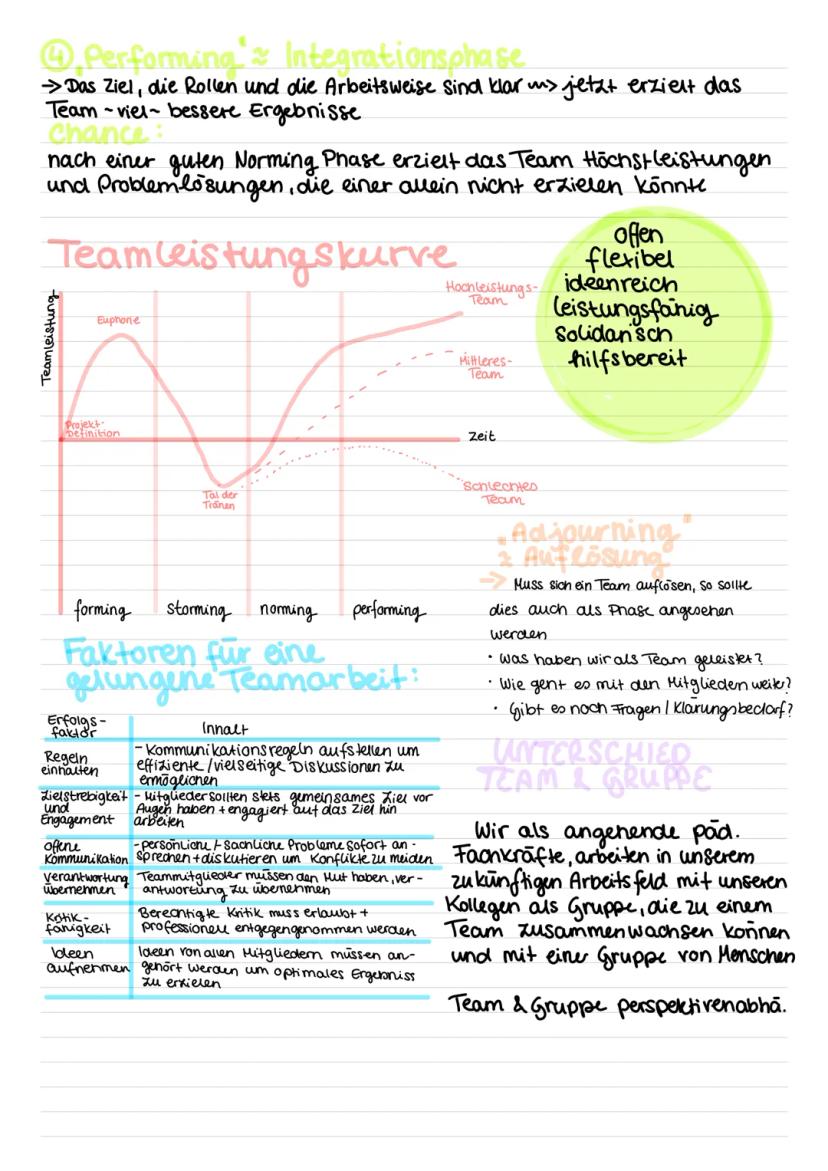 ④ „Performing" ≈ Integrationsphase
→ Das Ziel, die Rollen und die Arbeitsweise sind klar ~> jetzt erzielt das
Team ~viel~ bessere Ergebnisse
Chance:
nach einer guten Norming Phase erzielt das Team Höchstleistungen
und Problemlösungen, die einer allein nicht erzielen könnte
offen
flexibel
ideenreich
leistungsfähig
solidarisch
hilfsbereit
Teamleistungskurve
Teamleistung
Euphorie
Hochleistungs-
Team
Mittleres-
Team
Projekt-
Definition
Zeit
Tal der
Tränen
Schlechtes
Team
forming storming norming performing
„Adjourning"
≈ Auflösung
→ Muss sich ein Team auflösen, so sollte
dies auch als Phase angesehen
werden
• Was haben wir als Team geleistet?
• Wie geht es mit den Mitgliedern weiter?
• Gibt es noch Fragen / Klärungsbedarf?
Faktoren für eine
gelungene Teamarbeit:
Erfolgs-
faktor
Inhalt
Regeln
einhalten
- Kommunikationsregeln aufstellen um
effiziente / vielseitige Diskussionen zu
ermöglichen
Zielstrebigkeit
und
Engagement
- Mitglieder sollten stets gemeinsames Ziel vor
Augen haben + engagiert auf das Ziel hin
arbeiten
offene
Kommunikation
- persönliche / - sachliche Probleme sofort an-
sprechen + diskutieren um Konflikte zu meiden
Verantwortung
übernehmen
Teammitglieder müssen den Mut haben, ver-
antwortung zu übernehmen
Kritik-
fähigkeit
Berechtigte Kritik muss erlaubt +
professionell entgegengenommen werden
Ideen
aufnehmen
Ideen von allen Mitgliedern müssen an-
gehört werden um optimales Ergebniss
zu erzielen
UNTERSCHIED
TEAM & GRUPPE
Wir als angehende päd.
Fachkräfte, arbeiten in unserem
zukünftigen Arbeitsfeld mit unseren
Kollegen als Gruppe, die zu einem
Team zusammenwachsen können
und mit einer Gruppe von Menschen
Team & Gruppe perspektivenabhä.